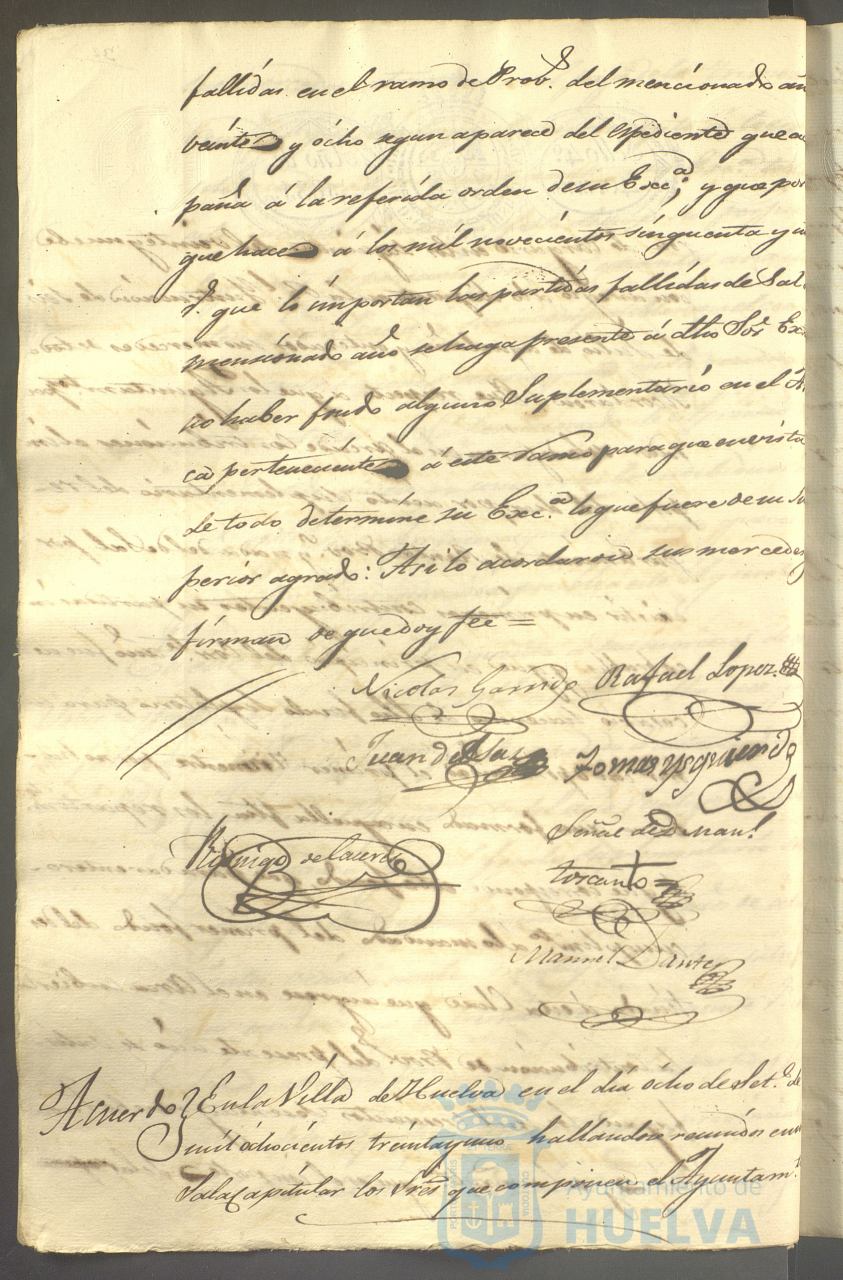 fallidas en el ramo de Prov.s del mencionado añ
veinte y ócho segun aparece del espediente que a
paña á la referida orden de su Exc.a; y que por
que hace á los mil novecientos sinquenta y u
r.s que lo importan las partidas fallidas de Sal
mensionado año se haga presente á dho Sor. Ex
no haber fondo alguno Suplementario en el A
ca perteneciente á este Ramo para que en vista
de todo determine su Exc.a lo que fuere de su Su
perior agrado: Asi lo acordaron sus mercedes
firman de que doy fee =
Nicolas Garrido Rafael Lopez
Juan de
Tomas Ysquierdo
Señal de D. Man.l
Remigio de la Cerda
toscano
Manuel
Acuerdo En la Villa de Huelva en el dia ócho de Set.e de
mil óchocientos treinta y uno hallandose reunidos en
Sala Capitular los Sres que componen el Ayuntam.to
Ayuntamiento de
HUELVA